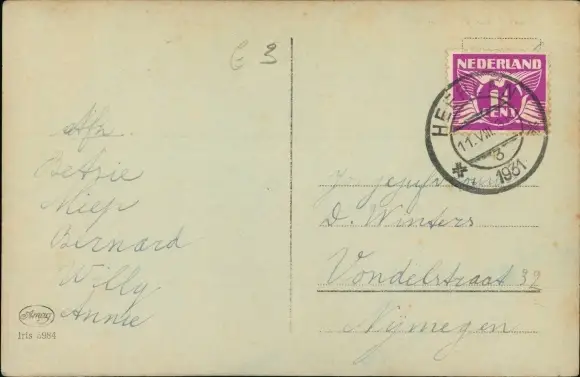 G 3
Afz.
Betsie
Miep
Bernard
Willy
Annie
Amag
Iris 5984
NEDERLAND
1
CENT
HEE
11.VIII
3
1931
D. Winters
Vondelstraat 32
Nijmegen